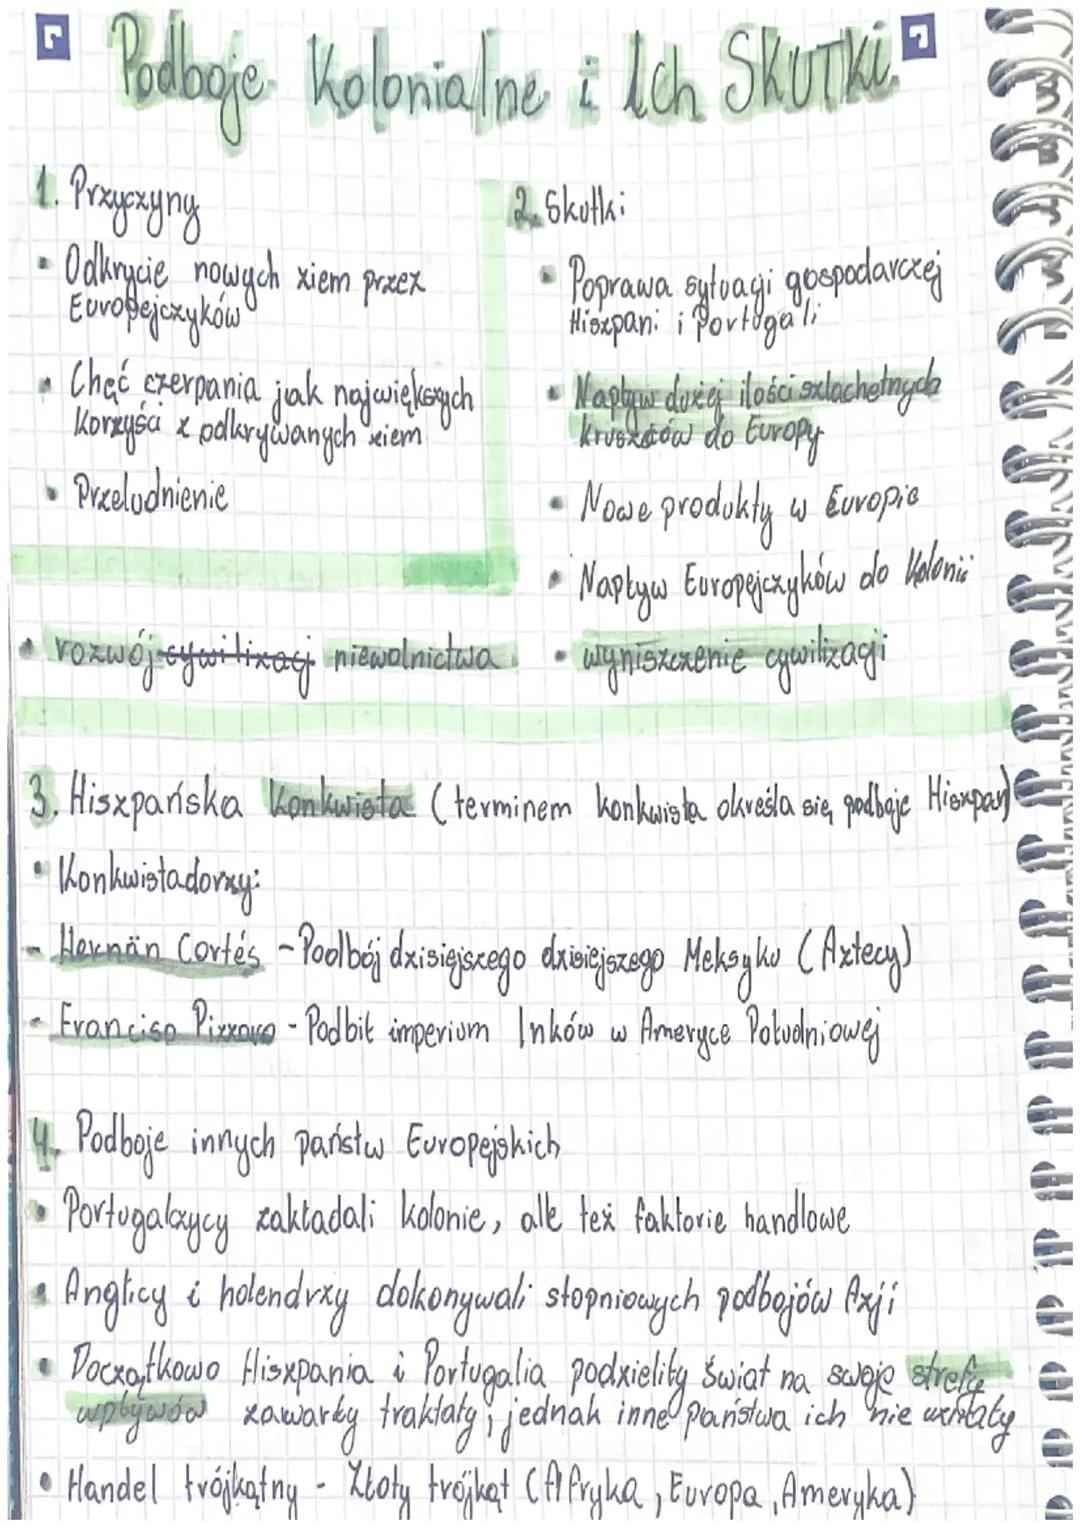 Podboje Kolonialne i Ich SKUTKI
1. Przyczyny
• Odkrycie nowych ziem przez
Europejczyków
• Chęć czerpania jak największych
korzyści z odkrywanych ziem
• Przeludnienie
2. Skutki
• Poprawa sytuacji gospodarczej
Hiszpani i Portugali
• Napływ dużej ilości szlachetnych
kruszców do Europy
• Nowe produkty w Europie
• Napływ Europejczyków do Kolonii
• rozwój cywilizacji niewolnictwa
• wyniszczenie cywilizacji
3. Hiszpańska Konkwista (terminem konkwista określa się podboje Hiszpan)
• Konkwistadorzy:
- Hernán Cortés - Podbój dzisiejszego dzisiejszego Meksyku (Aztecy)
- Franciso Pizzaro - Podbił imperium Inków w Ameryce Południowej
4. Podboje innych państw Europejskich
• Portugalczycy zakładali kolonie, alle też faktorie handlowe
• Anglicy i holendrzy dokonywali stopniowych podbojów Azji
• Początkowo Hiszpania i Portugalia podzieliły świat na swoje strefy
wpływów zawarły traktaty, jednak inne państwa ich nie uznały
• Handel trójkątny - Złoty trójkąt (Afryka, Europa, Ameryka)